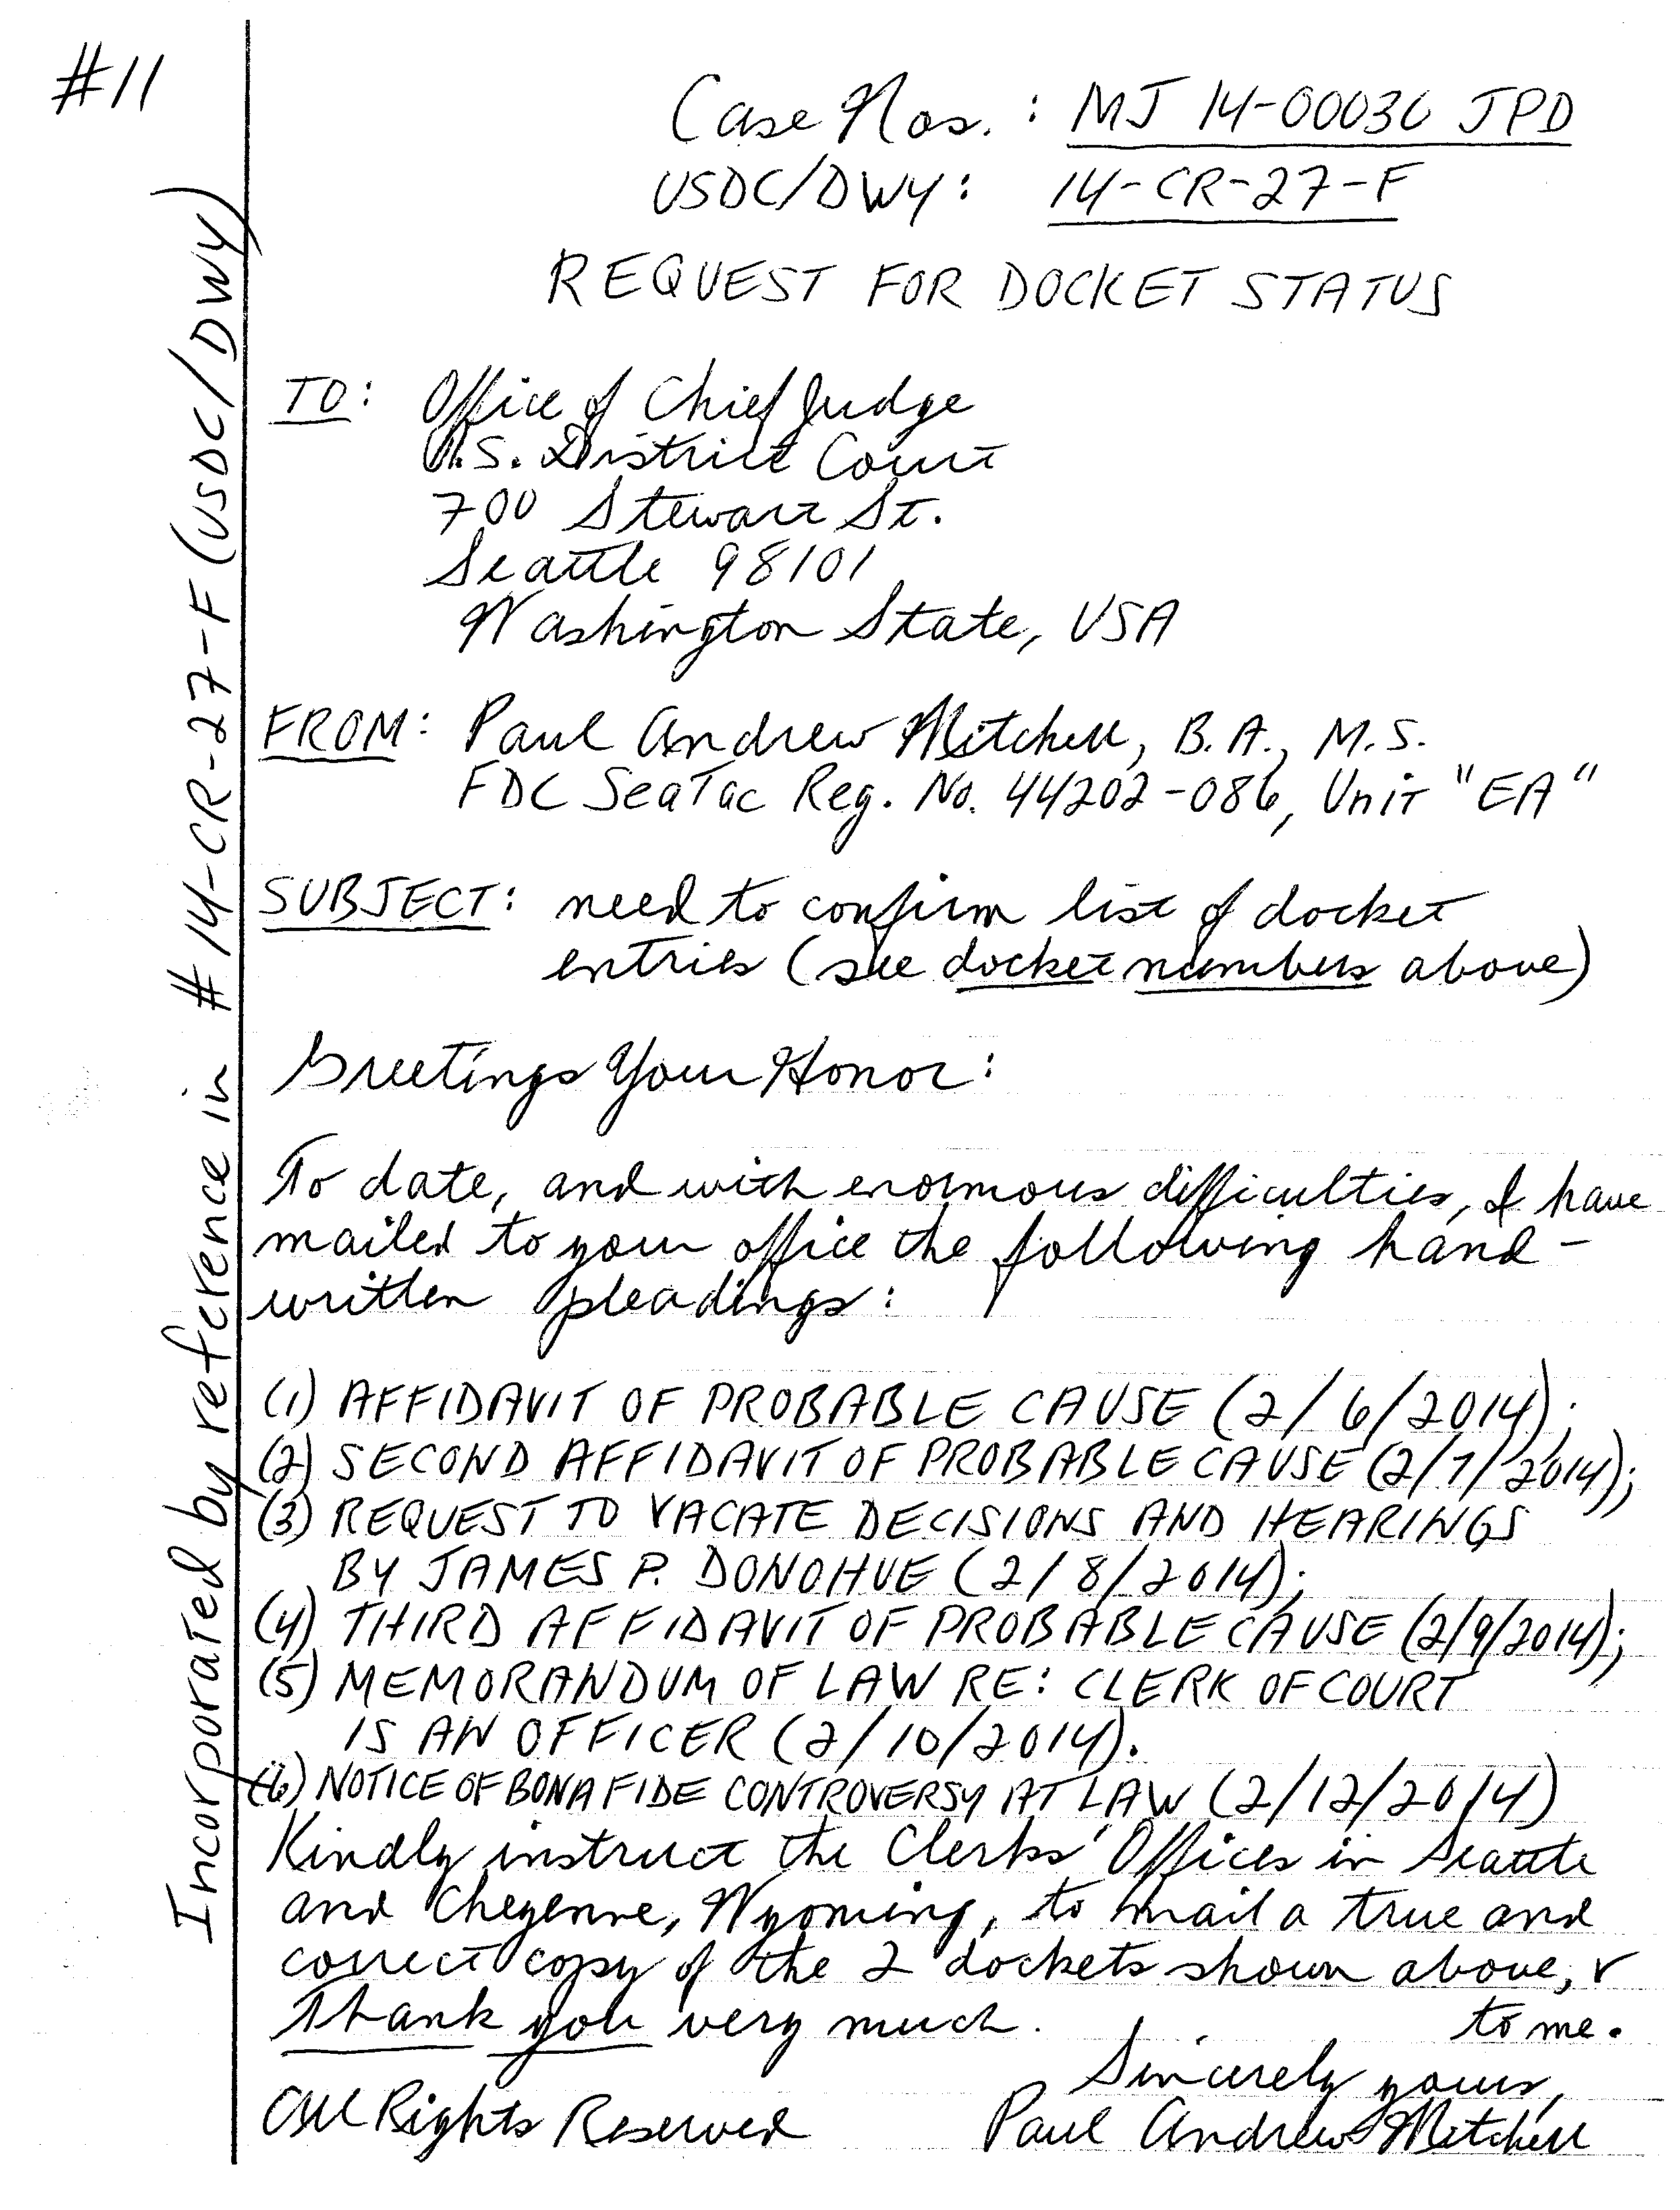 #11
Case Nos.: MJ 14-00036 JPD
USDC/DWY: 14-CR-27-F
REQUEST FOR DOCKET STATUS
TO: Office of Chief Judge
U.S. District Court
700 Stewart St.
Seattle 98101
Washington State, USA
FROM: Paul Andrew Mitchell, B.A., M.S.
FDC SeaTac Reg. No. 44202-086, Unit "EA"
SUBJECT: need to confirm list of docket
entries (see docket numbers above)
Greetings Your Honor:
To date, and with enormous difficulties, I have
mailed to your office the following hand-
written pleadings:
(1) AFFIDAVIT OF PROBABLE CAUSE (2/6/2014);
(2) SECOND AFFIDAVIT OF PROBABLE CAUSE (2/7/2014);
(3) REQUEST TO VACATE DECISIONS AND HEARINGS
BY JAMES P. DONOHUE (2/8/2014);
(4) THIRD AFFIDAVIT OF PROBABLE CAUSE (2/9/2014);
(5) MEMORANDUM OF LAW RE: CLERK OF COURT
IS AN OFFICER (2/10/2014).
(6) NOTICE OF BONA FIDE CONTROVERSY AT LAW (2/12/2014)
Kindly instruct the Clerks' Offices in Seattle
and Cheyenne, Wyoming, to mail a true and
correct copy of the 2 dockets shown above,
to me.
Thank you very much.
Sincerely yours,
All Rights Reserved
Paul Andrew Mitchell
Incorporated by reference in #14-CR-27-F (USDC/DWY)